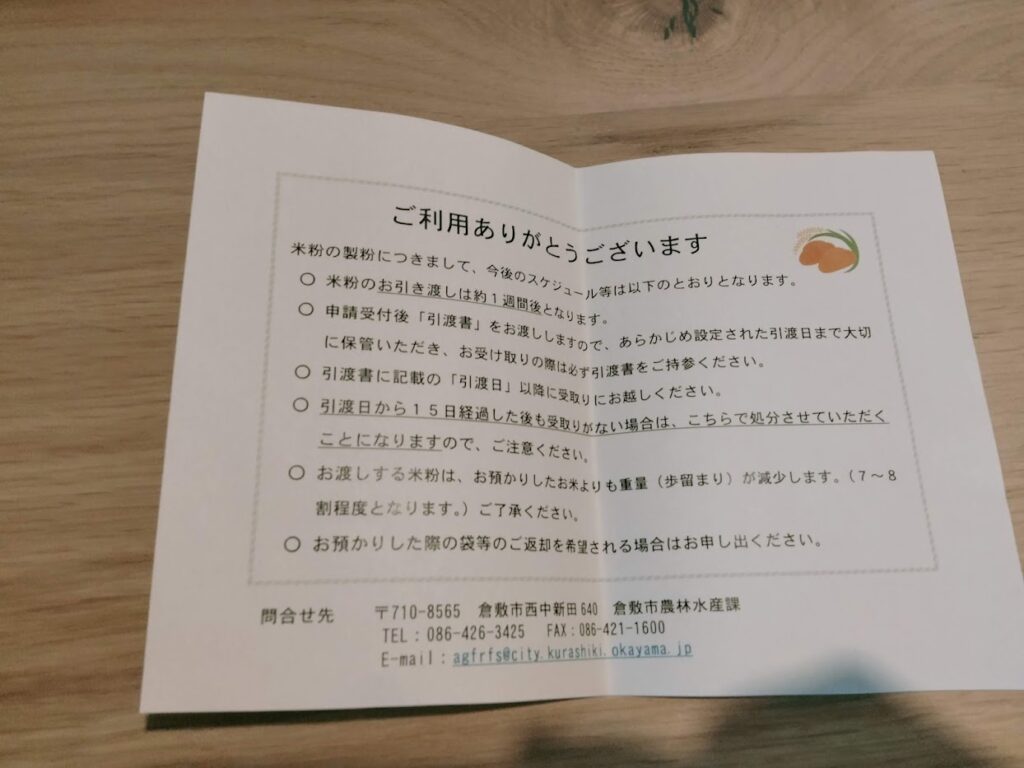 ご利用ありがとうございます
米粉の製粉につきまして、今後のスケジュール等は以下のとおりとなります。
○ 米粉のお引き渡しは約１週間後となります。
○ 申請受付後「引渡書」をお渡ししますので、あらかじめ設定された引渡日まで大切
に保管いただき、お受け取りの際は必ず引渡書をご持参ください。
○ 引渡書に記載の「引渡日」以降に受取りにお越しください。
○ 引渡日から１５日経過した後も受取りがない場合は、こちらで処分させていただく
ことになりますので、ご注意ください。
○ お渡しする米粉は、お預かりしたお米よりも重量（歩留まり）が減少します。（７～８
割程度となります。）ご了承ください。
○ お預かりした際の袋等のご返却を希望される場合はお申し出ください。
問合せ先 〒710-8565 倉敷市西中新田640 倉敷市農林水産課
TEL：086-426-3425 FAX：086-421-1600
E-mail：agfrfs@city.kurashiki.okayama.jp